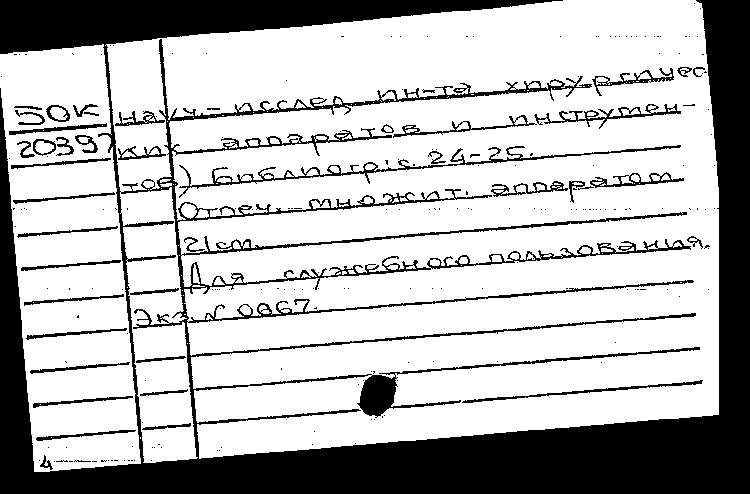 50К науч.-исслед. ин-та хирургичес
20397 ких аппаратов и инструмен-
тов) Библиогр: с. 24-25.
Отпеч. множит. аппаратом
21см.
Для служебного пользования.
Экз. № 0067.
4